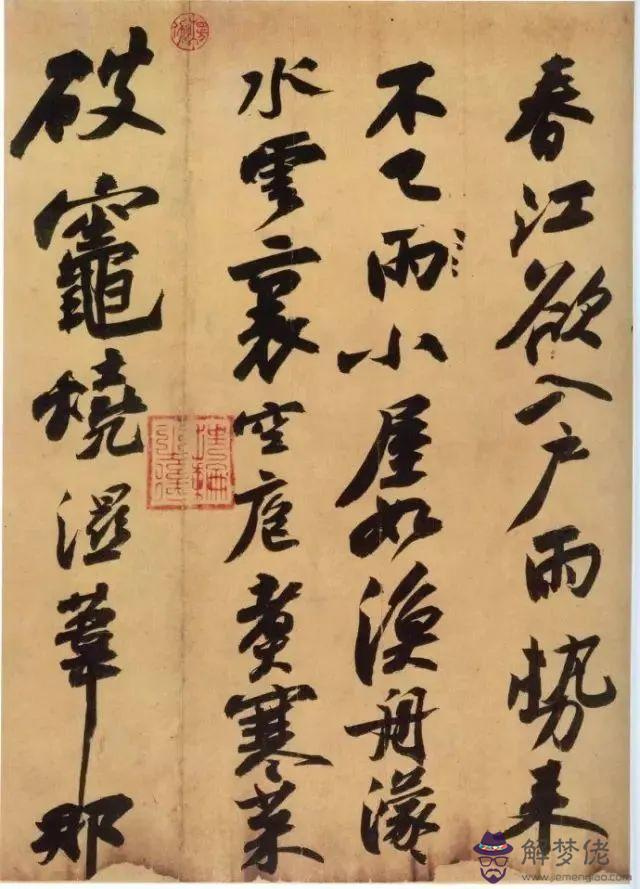 春江欲入戶雨勢来
不已雨小屋如漁舟濛
水雲裏空庖煮寒菜
破竈燒濕葦那
解梦佬
www.jiemenglao.com